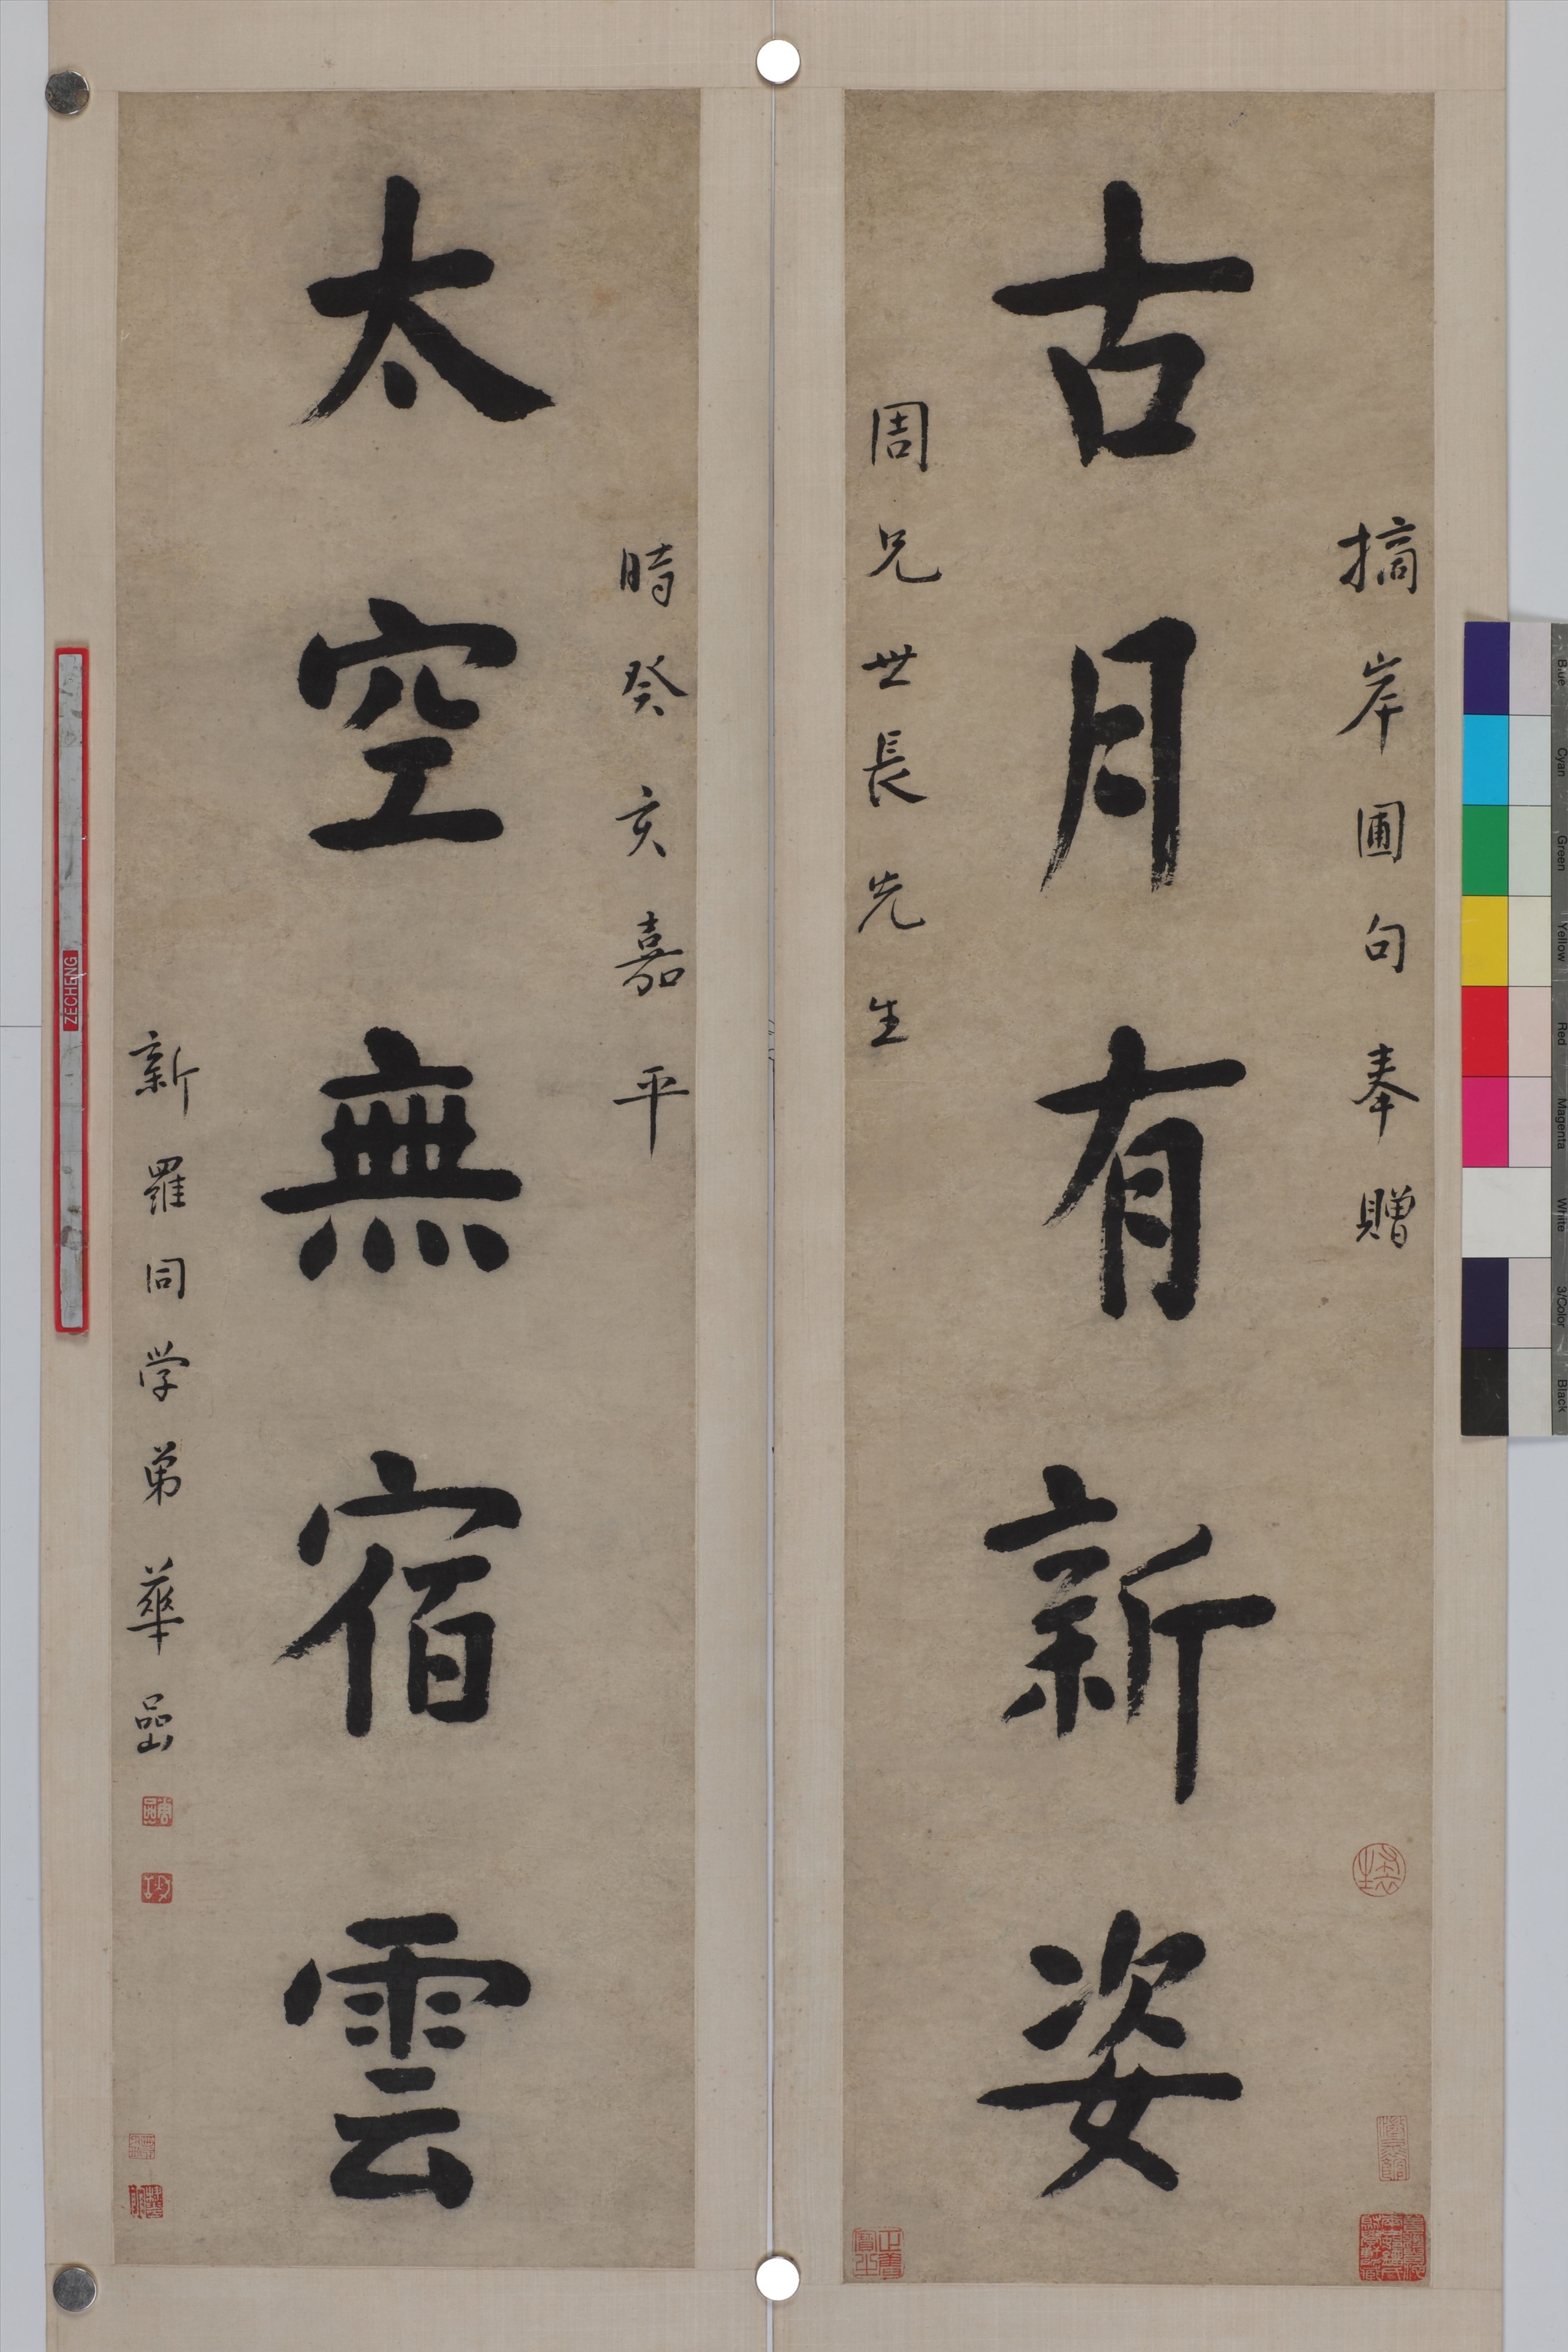 摘岸圃句奉贈
古月有新姿
周兄世長先生
時癸亥嘉平
太空無宿雲
新羅同学弟華嵒
ZECHENG
Blue
Cyan
Green
Yellow
Red
Magenta
White
3/Color
Black